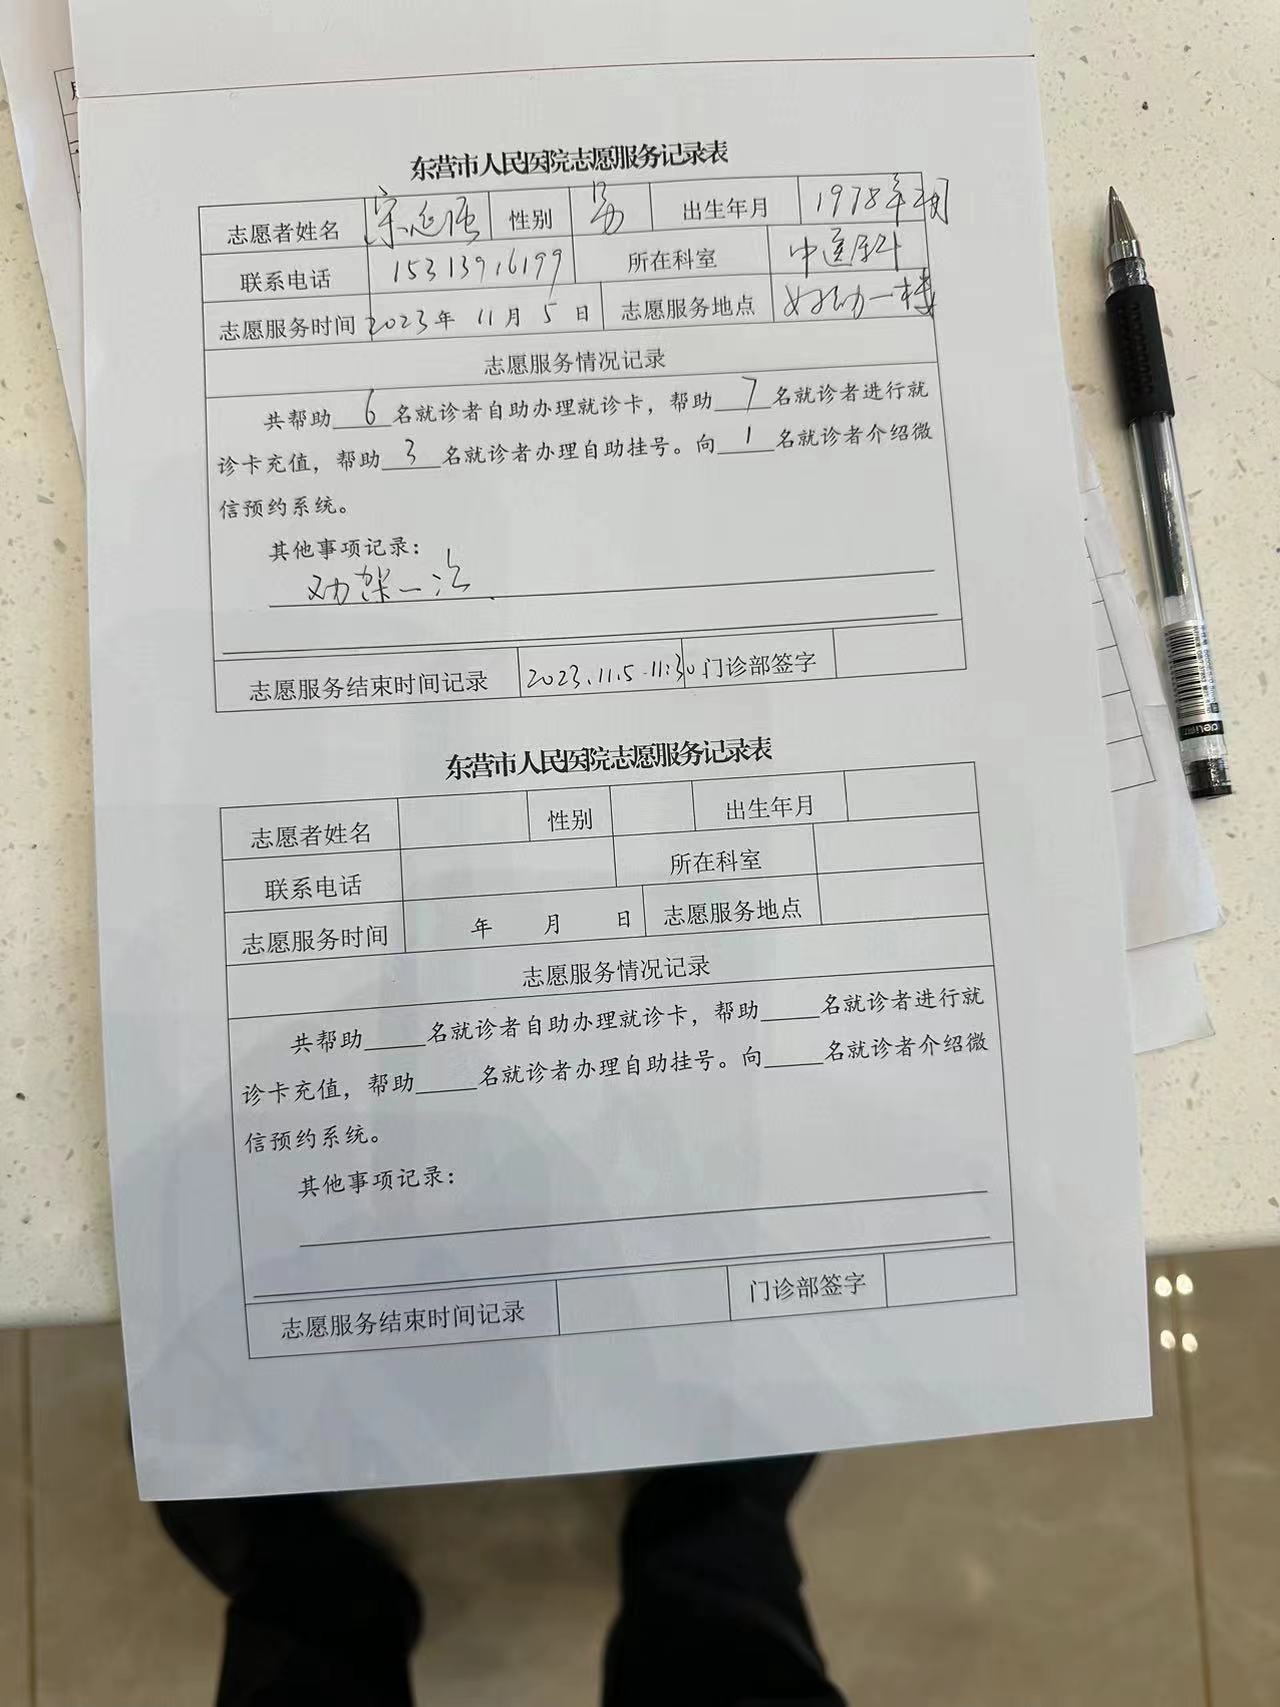 东营市人民医院志愿服务记录表
志愿者姓名 宋延强 性别 男 出生年月 1978年
联系电话 15313916199 所在科室 中医科
志愿服务时间 2023年 11月 5日 志愿服务地点 妇幼一楼
志愿服务情况记录
共帮助 6 名就诊者自助办理就诊卡，帮助 7 名就诊者进行就
诊卡充值，帮助 3 名就诊者办理自助挂号。向 1 名就诊者介绍微
信预约系统。
其他事项记录：
劝架一次.
志愿服务结束时间记录 2023.11.5.11:30 门诊部签字
东营市人民医院志愿服务记录表
志愿者姓名 性别 出生年月
联系电话 所在科室
志愿服务时间 年 月 日 志愿服务地点
志愿服务情况记录
共帮助_____名就诊者自助办理就诊卡，帮助_____名就诊者进行就
诊卡充值，帮助_____名就诊者办理自助挂号。向_____名就诊者介绍微
信预约系统。
其他事项记录：
志愿服务结束时间记录 门诊部签字
deli